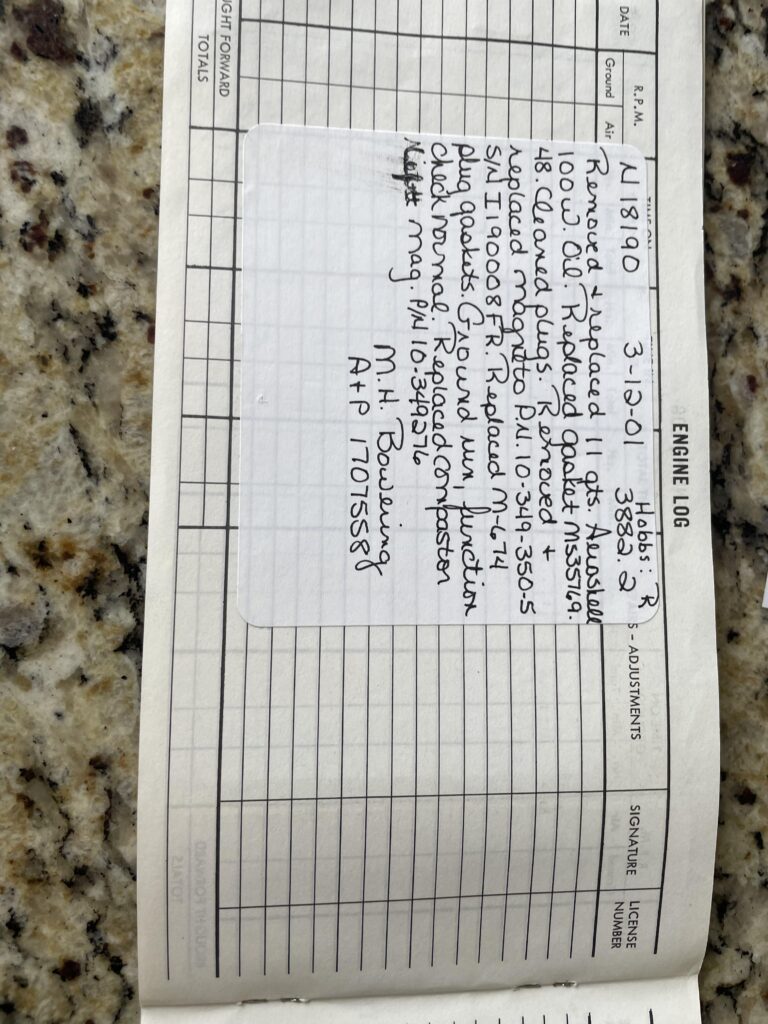 ENGINE LOG
DATE
R.P.M.
Ground Air
S - ADJUSTMENTS
SIGNATURE
LICENSE
NUMBER
N 18190 3-12-01 Hobbs: R
3882.2
Removed + replaced 11 qts. Aeroshell
100W. Oil. Replaced gasket MS35769.
48. Cleaned plugs. Removed +
replaced magneto P.N. 10-349-350-5
S/N I190008FR. Replaced M-674
plug gaskets. Ground run, function
check normal. Replaced
mag. P/N 10-349276
M.H. Bowering
A+P 1707558
GHT FORWARD
TOTALS